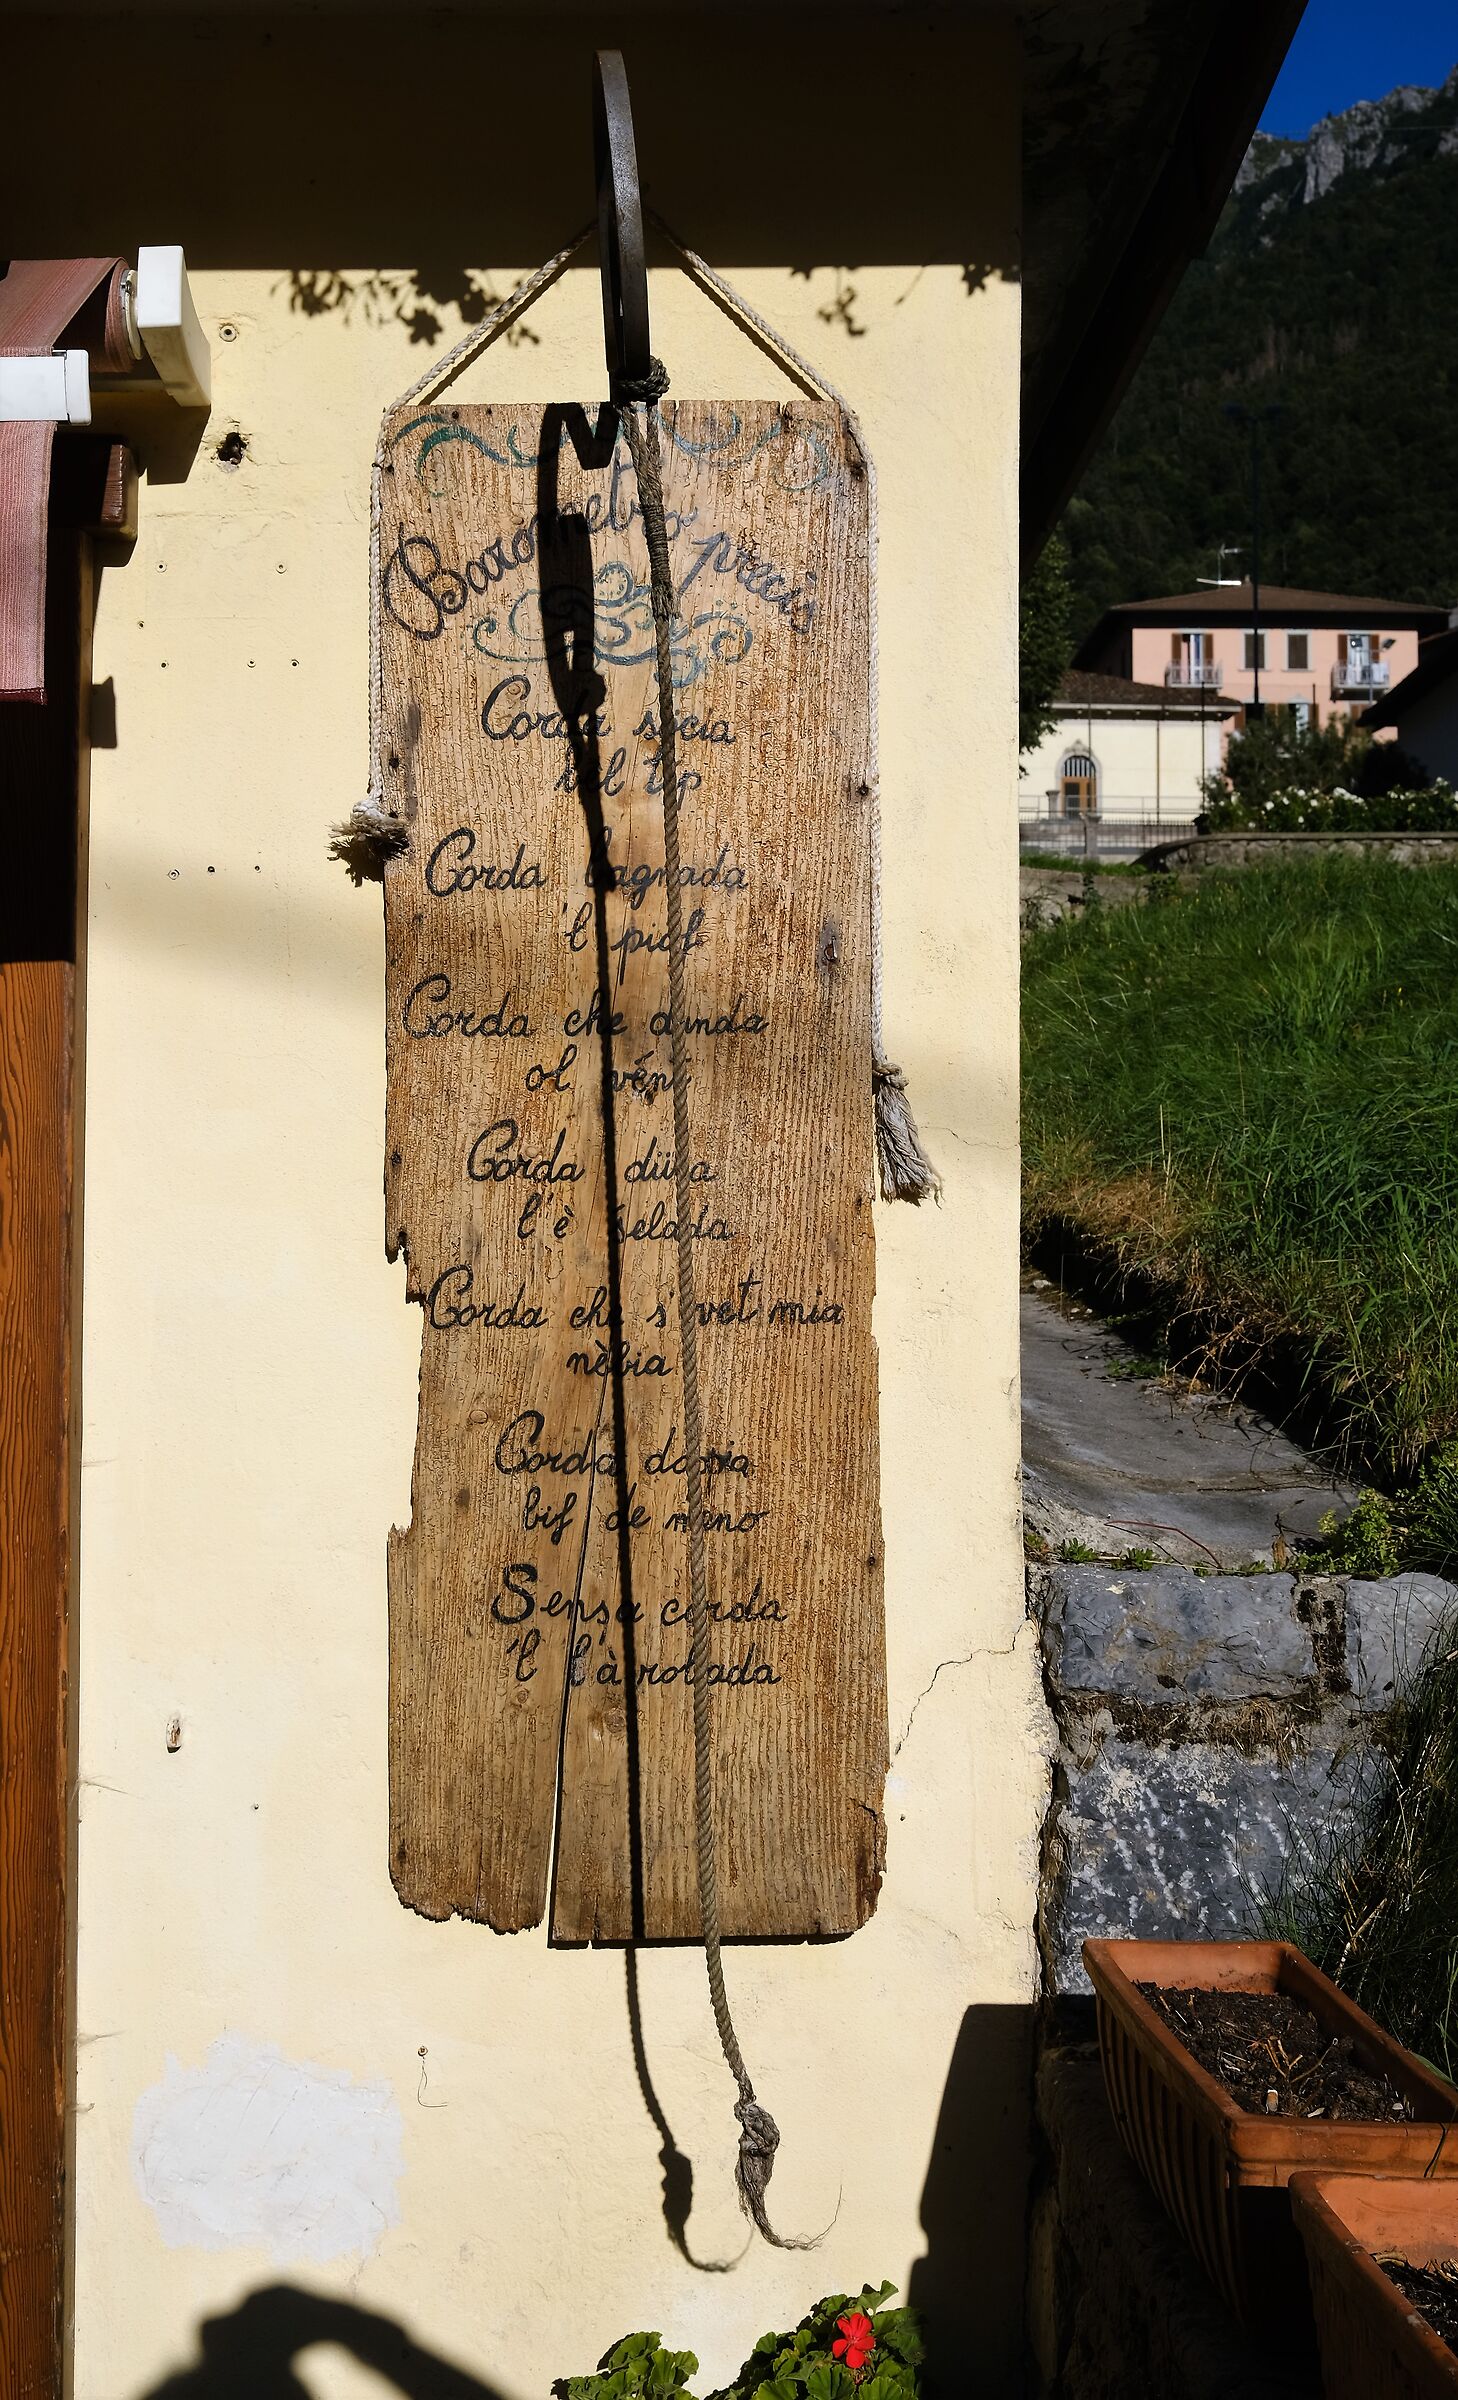 Barometro precis
Corda sücia
bel tip
Corda bagnada
'l piöf
Corda che dunda
ol vént
Corda düra
l'è gelada
Corda che s' vet mia
nèbia
Corda dopia
bif de meno
Sensa corda
'l l'à robada